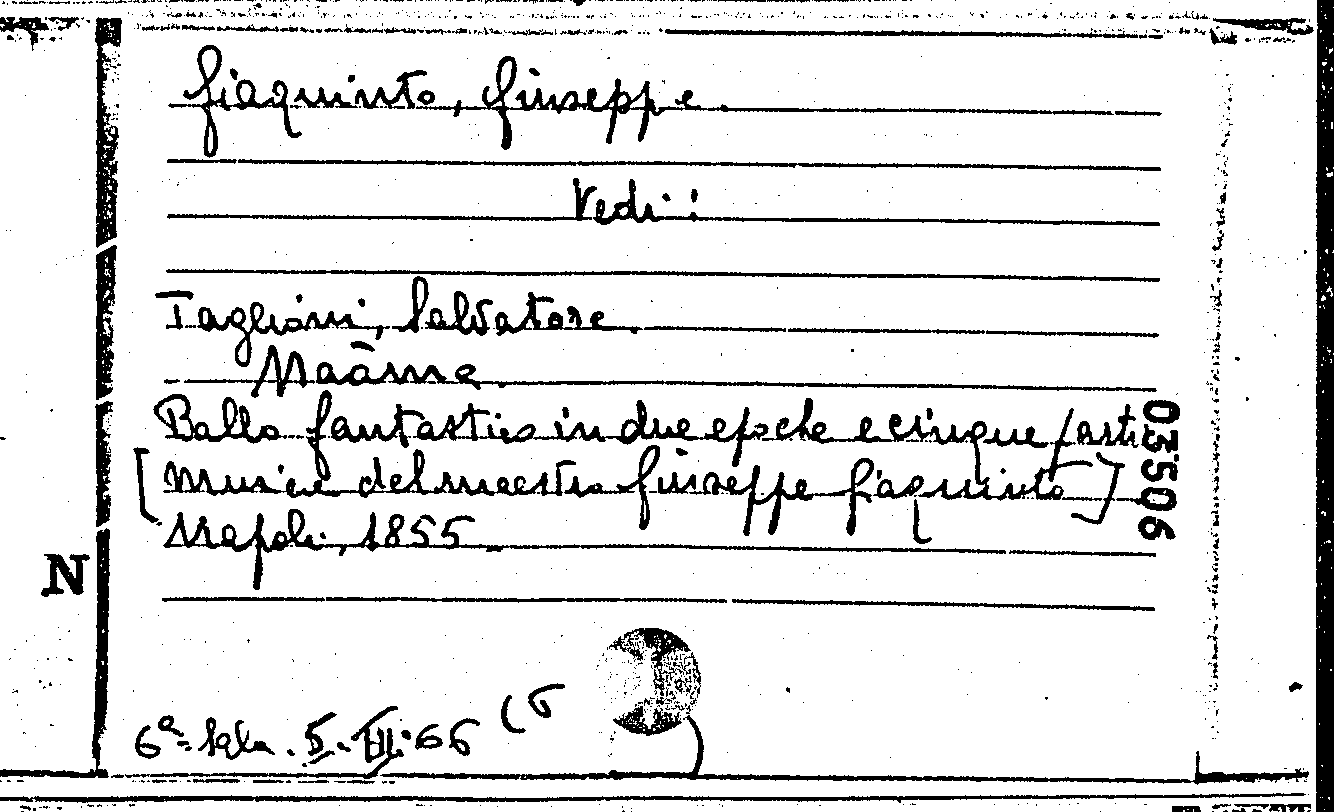 Giaquinto, Giuseppe.
Vedi:
Taglioni, Salvatore.
Maāma.
Ballo fantastico in due epoche e cinque parti
[Musica del maestro Giuseppe Giaquinto]
Napoli, 1855
03506
N
6ª Sala. 5. VII. 66 (6